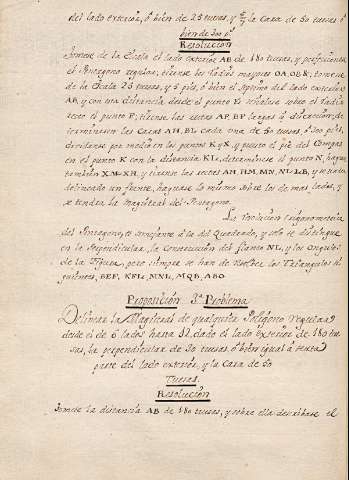 del lado exterior, ô bien de 25 tuesas, y 2/7 la Casa de 50 tuesas ô
bien de 300 pˢ
Resolucion
Tomese de la Escala el lado exterior AB de 180 tuesas, y perficionese
el Pentagono regular, tirense los Radios mayores OA, OB &ª, tomese
de la Escala 25 tuesas, y 5 piés, ô bien el septimo del lado exterior
AB, y con una distancia desde el punto E señalese sobre el Radio
recto el punto F; tirense las rectas AF, BF largas â discrecion, de-
terminense las Casas AH, BL cada una de 50 tuesas, ô 300 piés,
dividanse por medio en los puntos K y X, y puesto el pié del Compas
en el punto K con la distancia KL, determinese el punto N, hagase
tambien XM = XH, y tirense las rectas AH, HM, MN, NL, LB, y estarà
delineado un frente, hagasse lo mismo sobre los de mas lados, y
se tendrà la Magistral del Pentagono.
La resolucion trigonometrica
del Pentagono, es semejante à la del Quadrado, y solo se distingue
en la Perpendicular, la Construccion del flanco NL, y los angulos
de la figura, pero siempre se han de resolver los Triangulos si-
guientes, BEF, KFL, NXL, MQB, ABO.
Proposicion 3ª Problema
Delinear la Magistral de qualquier Poligono regular
desde el de 6 lados hasta 12, dado el lado exterior de 180 tue-
sas, la perpendicular de 30 tuesas ô bien igual à sexta
parte del lado exterior, y la Casa de 50
Tuesas.
Resolucion
Tomese la distancia AB de 180 tuesas, y sobre ella descrivase el